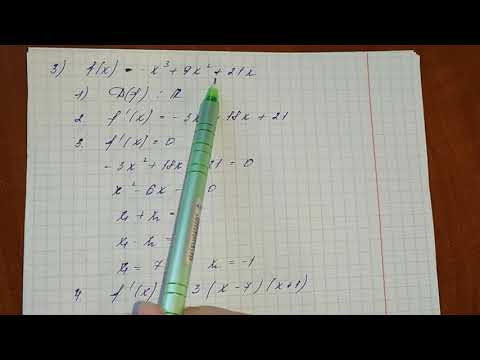 3) f(x) = -x³ + 9x² + 21x
1) D(f) : R
2. f'(x) = -3x + 18x + 21
3. f'(x) = 0
-3x² + 18x 21 = 0
x² - 6x - 0
x₁ + x₂ =
x₁ · x₂ =
x₁ = 7 x₂ = -1
4. f'(x) 3 (x-7) (x+1)